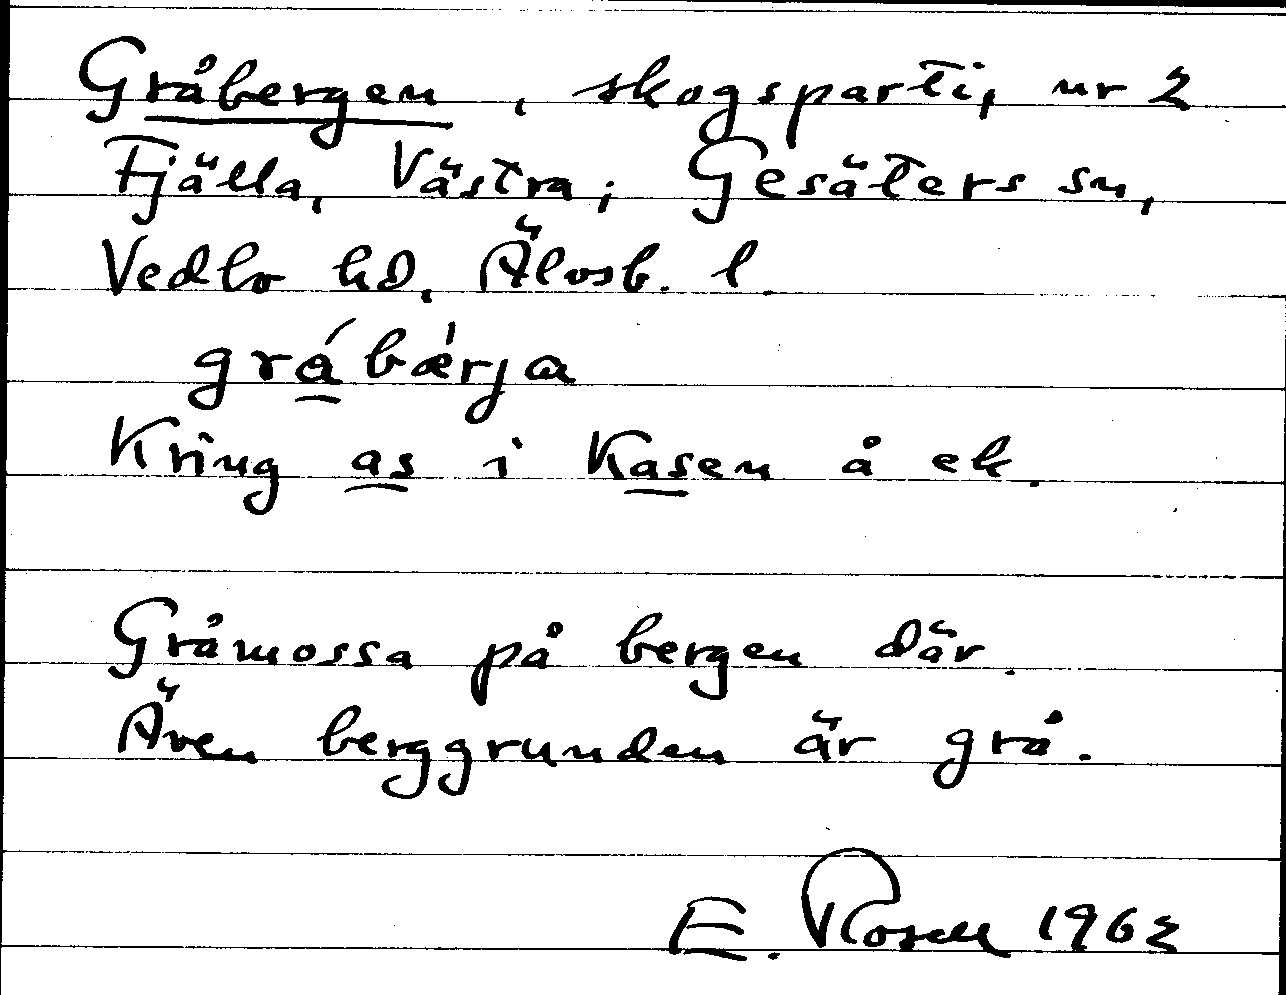 Gråbergen, skogsparti, nr 2
Fjälla, Västra; Gesäters sn,
Vedbo hd, Älvsb. l.
grá̱bæ̀rja
Kring as i Kasen å ek.
Gråmossa på bergen där.
Även berggrunden är grå.
E. Rosell 1962